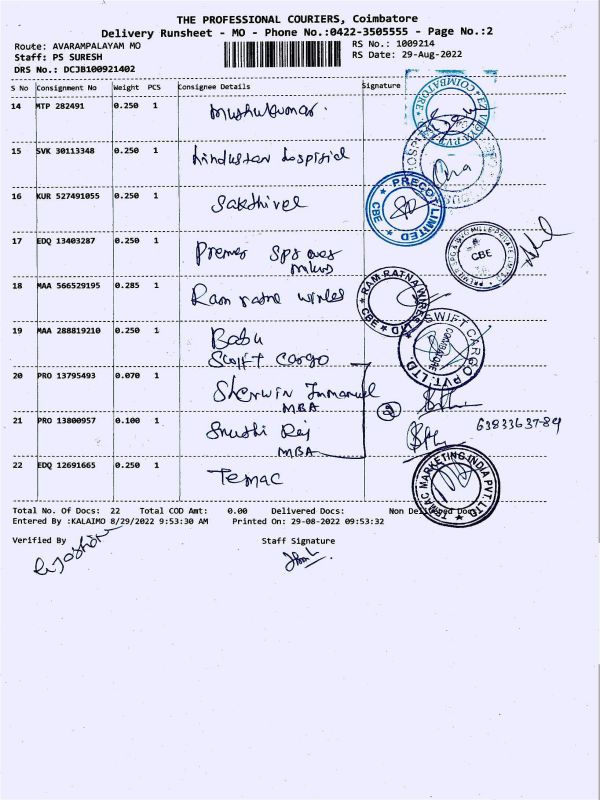 THE PROFESSIONAL COURIERS, Coimbatore
Delivery Runsheet - MO - Phone No.:0422-3505555 - Page No.:2
Route: AVARAMPALAYAM MO
RS No.: 1009214
Staff: PS SURESH
RS Date: 29-Aug-2022
DRS No.: DCJB100921402
S No Consignment No Weight PCS Consignee Details Signature
14 MTP 282491 0.250 1 Muthukumar.
COIMBATORE
15 SVK 30113348 0.250 1 hindustan hospital
16 KUR 527491055 0.250 1 Sakthivel
PRECOT LIMITED CBE
17 EDQ 13403287 0.250 1 Premier
mills
CBE
18 MAA 566529195 0.285 1 Ram ratna wires
RAM RATNA WIRES LTD CBE
19 MAA 288819210 0.250 1 Babu
Swift cargo
SWIFT CARGO PVT. LTD. COIMBATORE
20 PRO 13795493 0.070 1 Sherwin Immanuel
MBA
21 PRO 13800957 0.100 1 Sruthi Raj
MBA
22 EDQ 12691665 0.250 1 Temac
TEMAC MARKETING INDIA PVT. LTD
Total No. Of Docs: 22 Total COD Amt: 0.00 Delivered Docs: Non Delivered Docs
Entered By :KALAIMO 8/29/2022 9:53:30 AM Printed On: 29-08-2022 09:53:32
Verified By Staff Signature